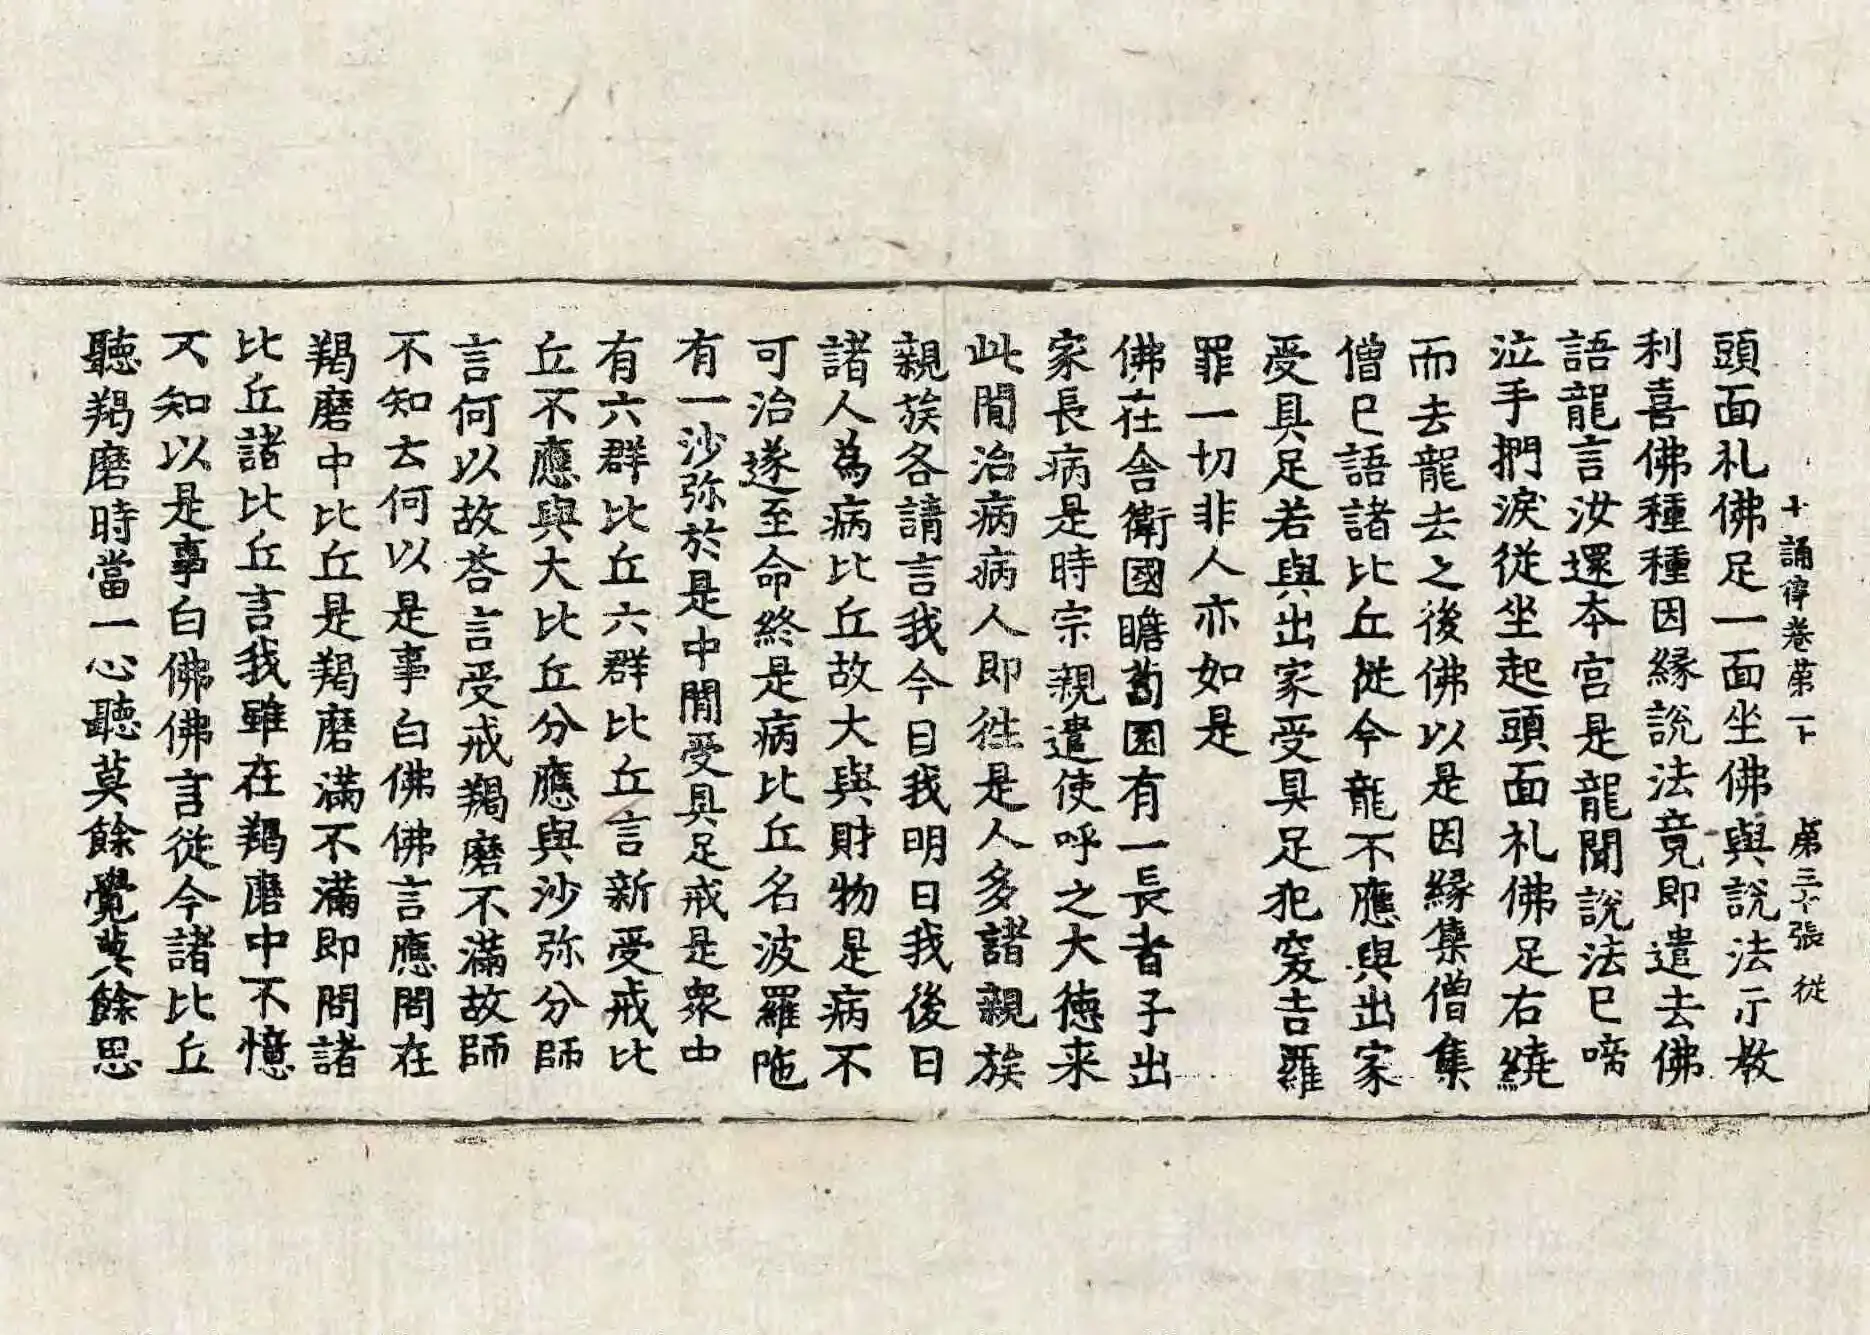 十誦律卷第一下　第三十張　從
頭面礼佛足一面坐佛與說法示教
利喜佛種種因緣說法竟即遣去佛
語龍言汝還本宮是龍聞說法已啼
泣手捫淚從坐起頭面礼佛足右繞
而去龍去之後佛以是因緣集僧集
僧已語諸比丘從今龍不應與出家
受具足若與出家受具足犯突吉羅
罪一切非人亦如是
佛在舍衛國瞻蔔園有一長者子出
家長病是時宗親遣使呼之大德来
此間治病病人即往是人多諸親族
親族各請言我今日我明日我後日
諸人為病比丘故大與財物是病不
可治遂至命終是病比丘名波羅陁
有一沙弥於是中間受具足戒是眾中
有六群比丘六群比丘言新受戒比
丘不應與大比丘分應與沙弥分師
言何以故荅言受戒羯磨不滿故師
不知云何以是事白佛佛言應問在
羯磨中比丘是羯磨滿不滿即問諸
比丘諸比丘言我雖在羯磨中不憶
不知以是事白佛佛言從今諸比丘
聽羯磨時當一心聽莫餘覺莫餘思